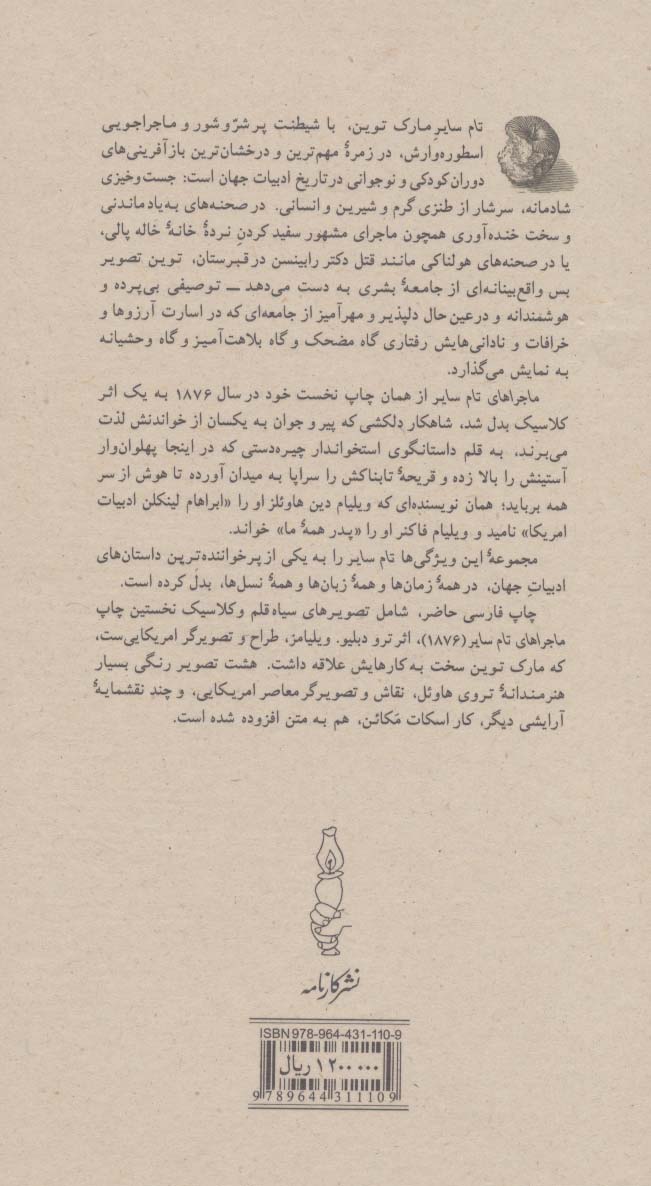 تام سایرِ مارک تواین، با شیطنت پرشرّوشور و ماجراجویی
اسطوره‌وارش، در زمرهٔ مهم‌ترین و درخشان‌ترین بازآفرینی‌های
دوران کودکی و نوجوانی در تاریخ ادبیات جهان است: جست‌وخیزی
شادمانه، سرشار از طنزی گرم و شیرین و انسانی. در صحنه‌های به‌یادماندنی
و سخت خنده‌آوری همچون ماجرای مشهور سفید کردنِ نردهٔ خانهٔ خاله پالی،
یا در صحنه‌های هولناکی مانند قتل دکتر رابینسن در قبرستان، تواین تصویر
بس واقع‌بینانه‌ای از جامعهٔ بشری به دست می‌دهد ــ توصیفی بی‌پرده و
هوشمندانه و درعین حال دلپذیر و مهرآمیز از جامعه‌ای که در اسارت آرزوها و
خرافات و نادانی‌هایش رفتاری گاه مضحک و گاه بلاهت‌آمیز و گاه وحشیانه
به نمایش می‌گذارد.
ماجراهای تام سایر از همان چاپ نخست خود در سال ۱۸۷۶ به یک اثر
کلاسیک بدل شد، شاهکار دلکشی که پیر و جوان به یکسان از خواندنش لذت
می‌برند، به قلم داستانگوی استخواندار چیره‌دستی که در اینجا پهلوان‌وار
آستینش را بالا زده و قریحهٔ تابناکش را سراپا به میدان آورده تا هوش از سر
همه برباید؛ همان نویسنده‌ای که ویلیام دین هاوئلز او را «ابراهام لینکلن ادبیات
امریکا» نامید و ویلیام فاکنر او را «پدر همهٔ ما» خواند.
مجموعهٔ این ویژگی‌ها تام سایر را به یکی از پرخواننده‌ترین داستان‌های
ادبیاتِ جهان، در همهٔ زمان‌ها و همهٔ زبان‌ها و همهٔ نسل‌ها، بدل کرده است.
چاپ فارسی حاضر، شامل تصویرهای سیاه‌قلم و کلاسیک نخستین چاپ
ماجراهای تام سایر (۱۸۷۶)، اثر ترو دبلیو. ویلیامز، طراح و تصویرگر امریکایی‌ست،
که مارک تواین سخت به کارهایش علاقه داشت. هشت تصویر رنگی بسیار
هنرمندانهٔ تروی هاوئل، نقاش و تصویرگر معاصر امریکایی، و چند نقشمایهٔ
آرایشی دیگر، کار اسکات مَکائن، هم به متن افزوده شده است.
نشر کارنامه
ISBN 978-964-431-110-9
۱۲۰۰۰۰۰ ریال
9 789644 311109